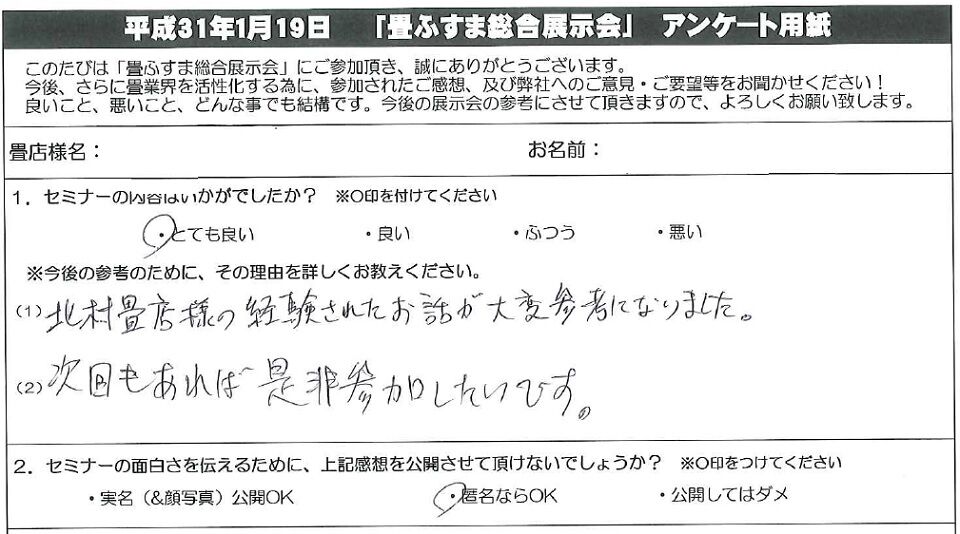 平成31年1月19日 「畳ふすま総合展示会」 アンケート用紙
このたびは「畳ふすま総合展示会」にご参加頂き、誠にありがとうございます。
今後、さらに畳業界を活性化する為に、参加されたご感想、及び弊社へのご意見・ご要望等をお聞かせください！
良いこと、悪いこと、どんな事でも結構です。今後の展示会の参考にさせて頂きますので、よろしくお願い致します。
畳店様名： お名前：
1．セミナーの内容はいかがでしたか？ ※○印を付けてください
・とても良い ・良い ・ふつう ・悪い
※今後の参考のために、その理由を詳しくお教えください。
(1) 北村畳店様の経験されたお話が大変参考になりました。
(2) 次回もあれば是非参加したいです。
2．セミナーの面白さを伝えるために、上記感想を公開させて頂けないでしょうか？ ※○印をつけてください
・実名（&顔写真）公開OK ・匿名ならOK ・公開してはダメ